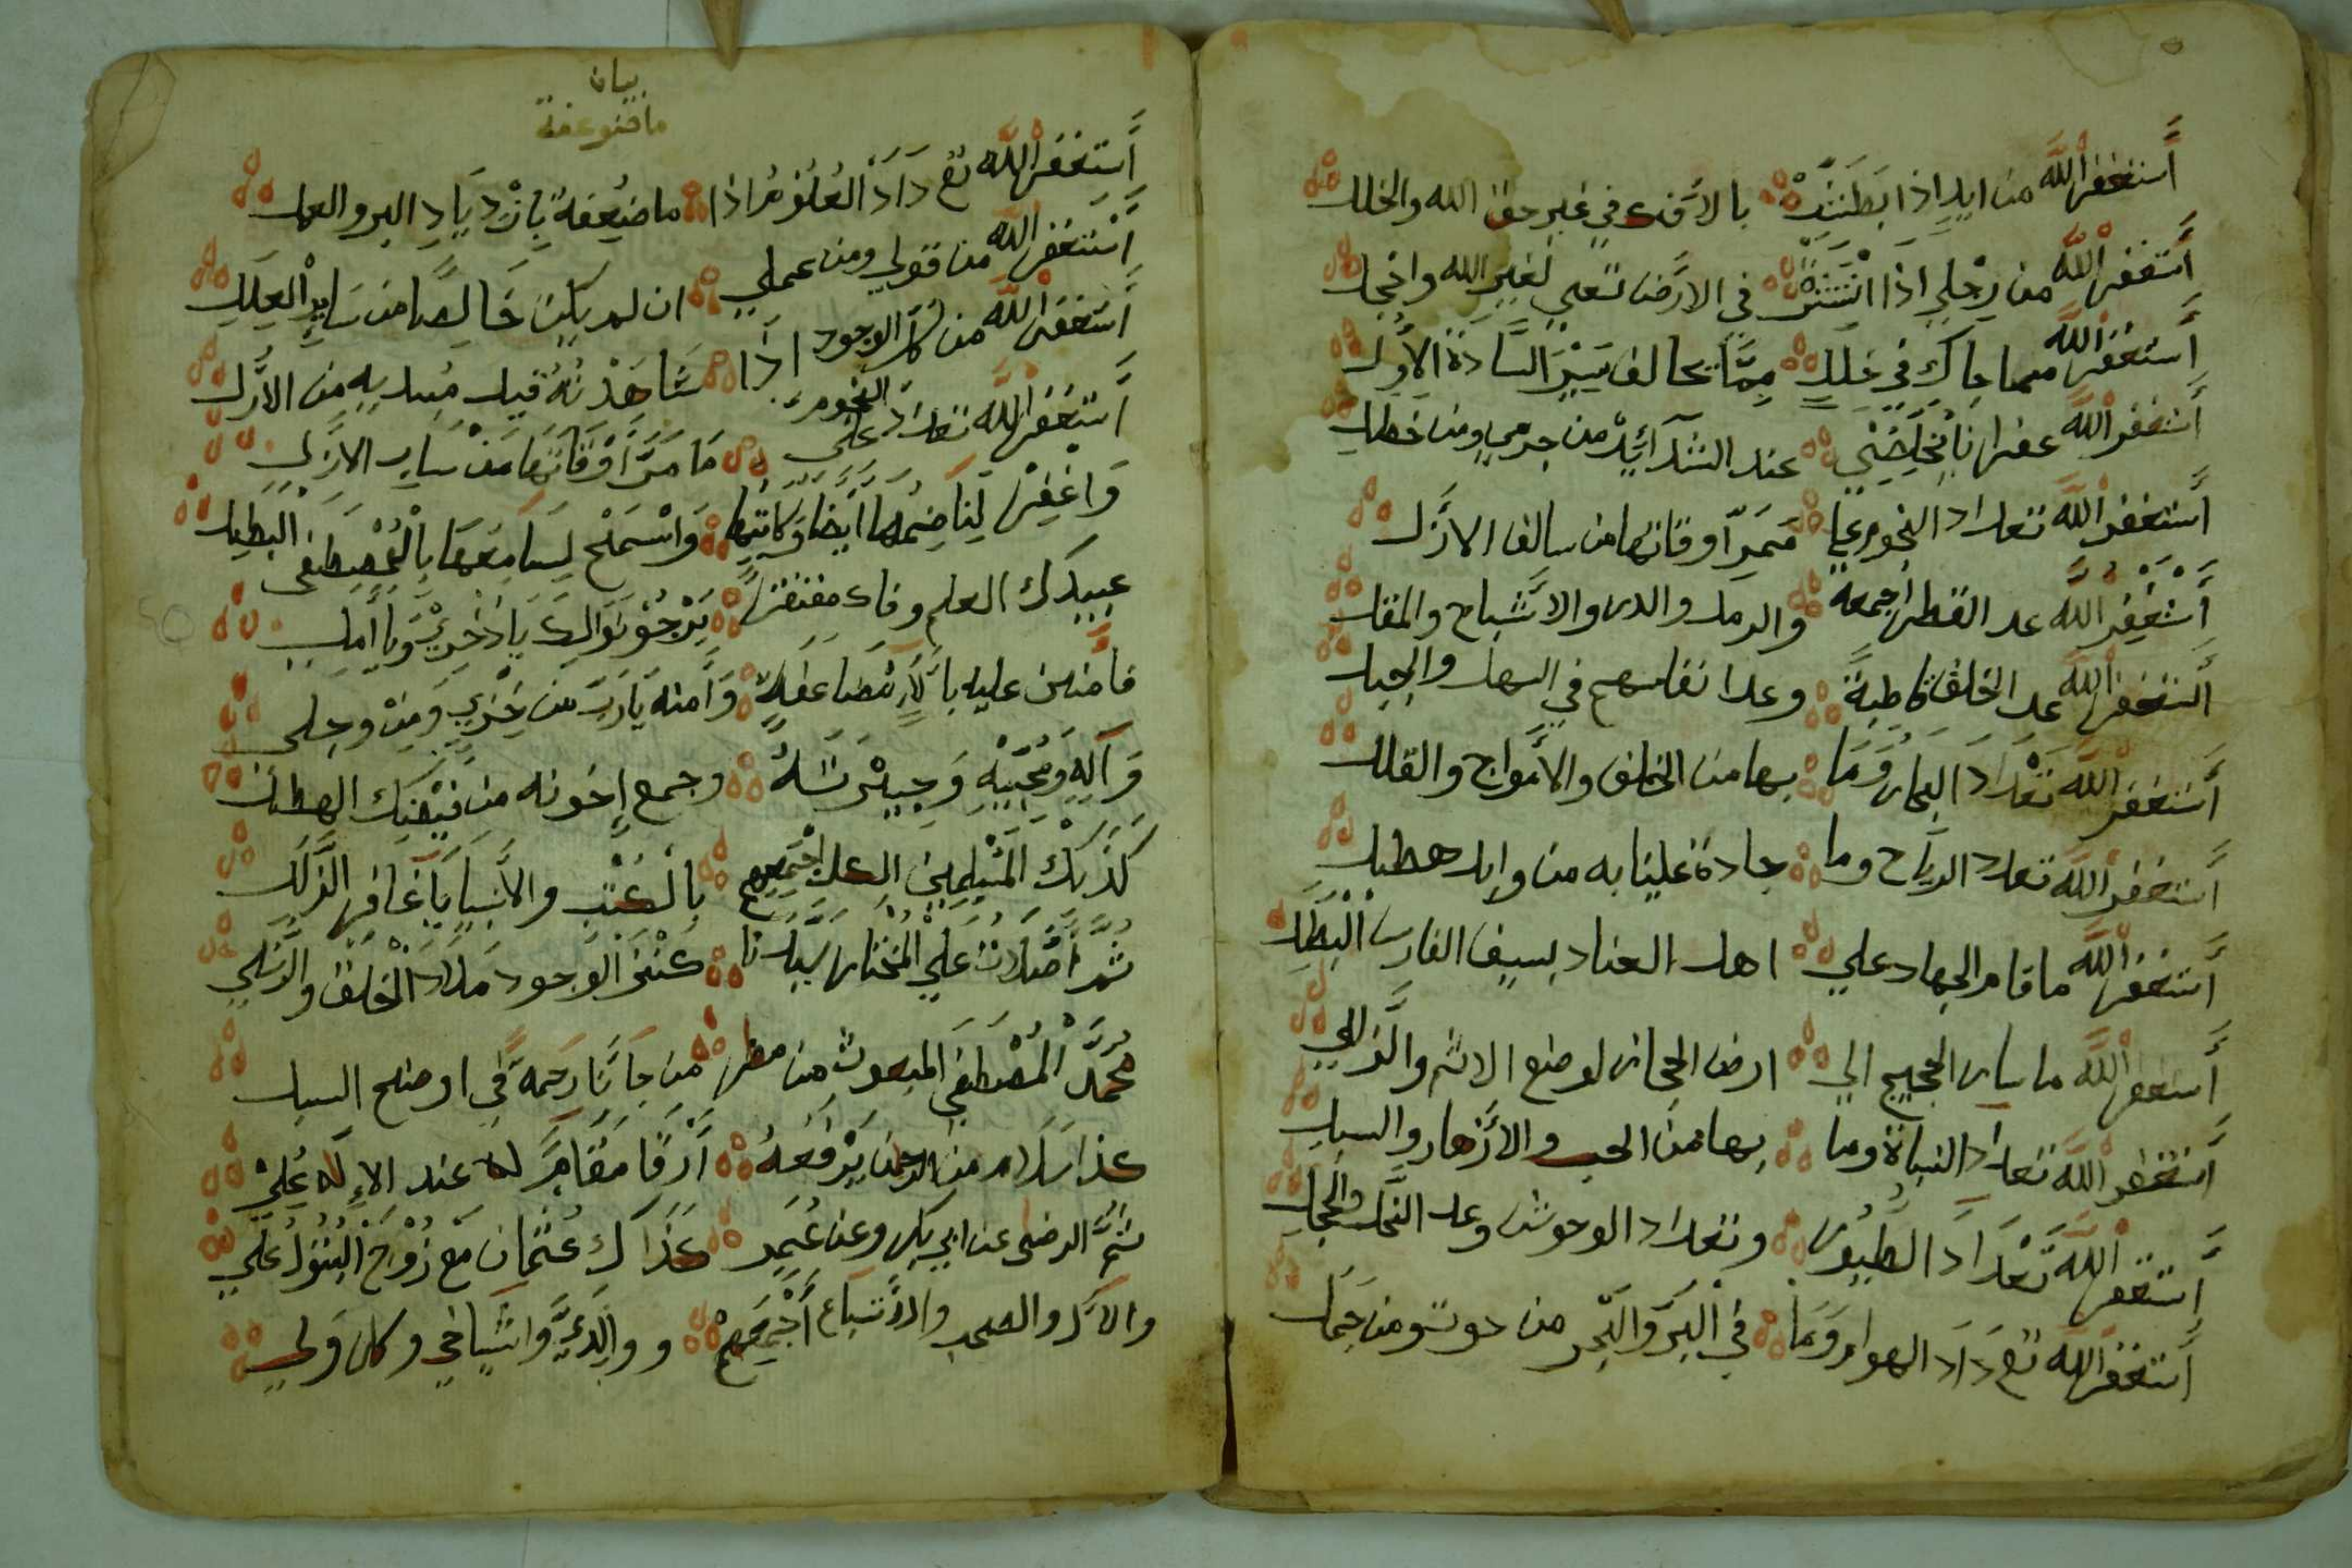 أستغفر الله من ايد اذا بطشت بالأذى في غير حق الله والخلل
أستغفر الله من رجلي اذا انتشرت في الارض تسعى لغير الله واخجل
أستغفر الله مما حاك في خلل مما يخالف سير السادة الأول
أستغفر الله غفرانا يخلصني عند الشدائد من جرمي ومن خطل
أستغفر الله تعداد النجوم علي ممر أوقاتها من سالف الازل
أستغفر الله عد القطر اجمعه والرمل والدر والاشباح والمقل
أستغفر الله عد الخلق قاطبة وعد انفاسهم في السهل والجبل
أستغفر الله تعداد البحار وما بها من الخلق والأمواج والقلل
أستغفر الله تعداد الرياح وما جادة علينا به من وابل هطل
أستغفر الله ما قام الجهاد علي اهل العناد بسيف الفارس البطل
أستغفر الله ما سار الحجيج الي ارض الحجاز لوضع الاثم والزلل
أستغفر الله تعداد النباة وما بها من الحب والأزهار والسبل
أستغفر الله تعداد الطيور وتعداد الوحوش وعد النحل والحجل
أستغفر الله تعداد الهوام وما في البر والبحر من حوت ومن جمل
بيان
أستغفر الله تعداد العلوم اذا ما ضعفة بازدياد البر والعمل
أستغفر الله من قولي ومن عملي ان لم يكن خالصا من ساير العلل
أستغفر الله من كل الوجود اذا شاهدته قبل مبديه من الأزل
أستغفر الله تعداد النجوم علي ما مر أوقاتها من ساير الازل
واغفر لناضمها أيضا وكاتبها واسمح لسامعها بالمصطفى البطل
عبيدك العلم وفاك مفتقرا يرجو نوالك يا ذخري ويا أمل
فامنن عليه بالأر مضاعفة وآمنه يارب من خزي ومن وجل
وآله ومحبيه وجيرته وجمع إخوته من فيضك الهطل
كذلك المسلمين الكل اجمعهم بالكتب والأنبيا يا غافر الزلل
ثم الصلاة على المختار سيدنا كنز الوجود ملاذ الخلق والرسل
محمد المصطفى المبعوث من مضر من جانا رحمة في اوضح السبل
كذا سلام من الرحمن يرفعه أرقا مقام له عند الإله علي
ثم الرضى عن ابي بكر وعن عمر كذاك عثمان مع زوج البتول علي
والآل والصحب والأتباع أجمعهم ووالدي واشياخي وكل ولي